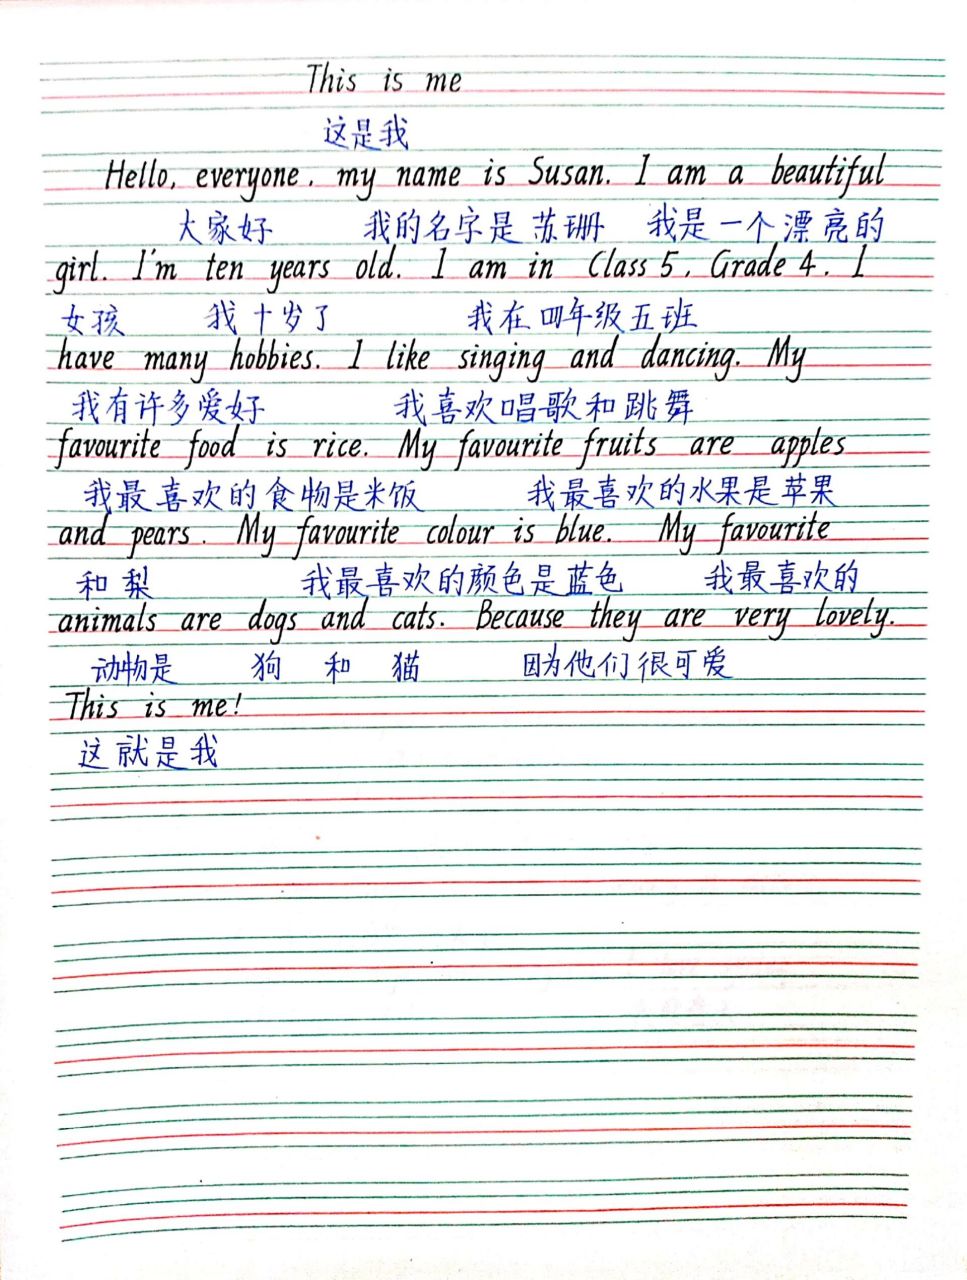 This is me
这是我
Hello, everyone, my name is Susan. I am a beautiful
大家好 我的名字是苏珊 我是一个漂亮的
girl. I'm ten years old. I am in Class 5, Grade 4. I
女孩 我十岁了 我在四年级五班
have many hobbies. I like singing and dancing. My
我有许多爱好 我喜欢唱歌和跳舞
favourite food is rice. My favourite fruits are apples
我最喜欢的食物是米饭 我最喜欢的水果是苹果
and pears. My favourite colour is blue. My favourite
和梨 我最喜欢的颜色是蓝色 我最喜欢的
animals are dogs and cats. Because they are very lovely.
动物是 狗 和 猫 因为他们很可爱
This is me!
这就是我